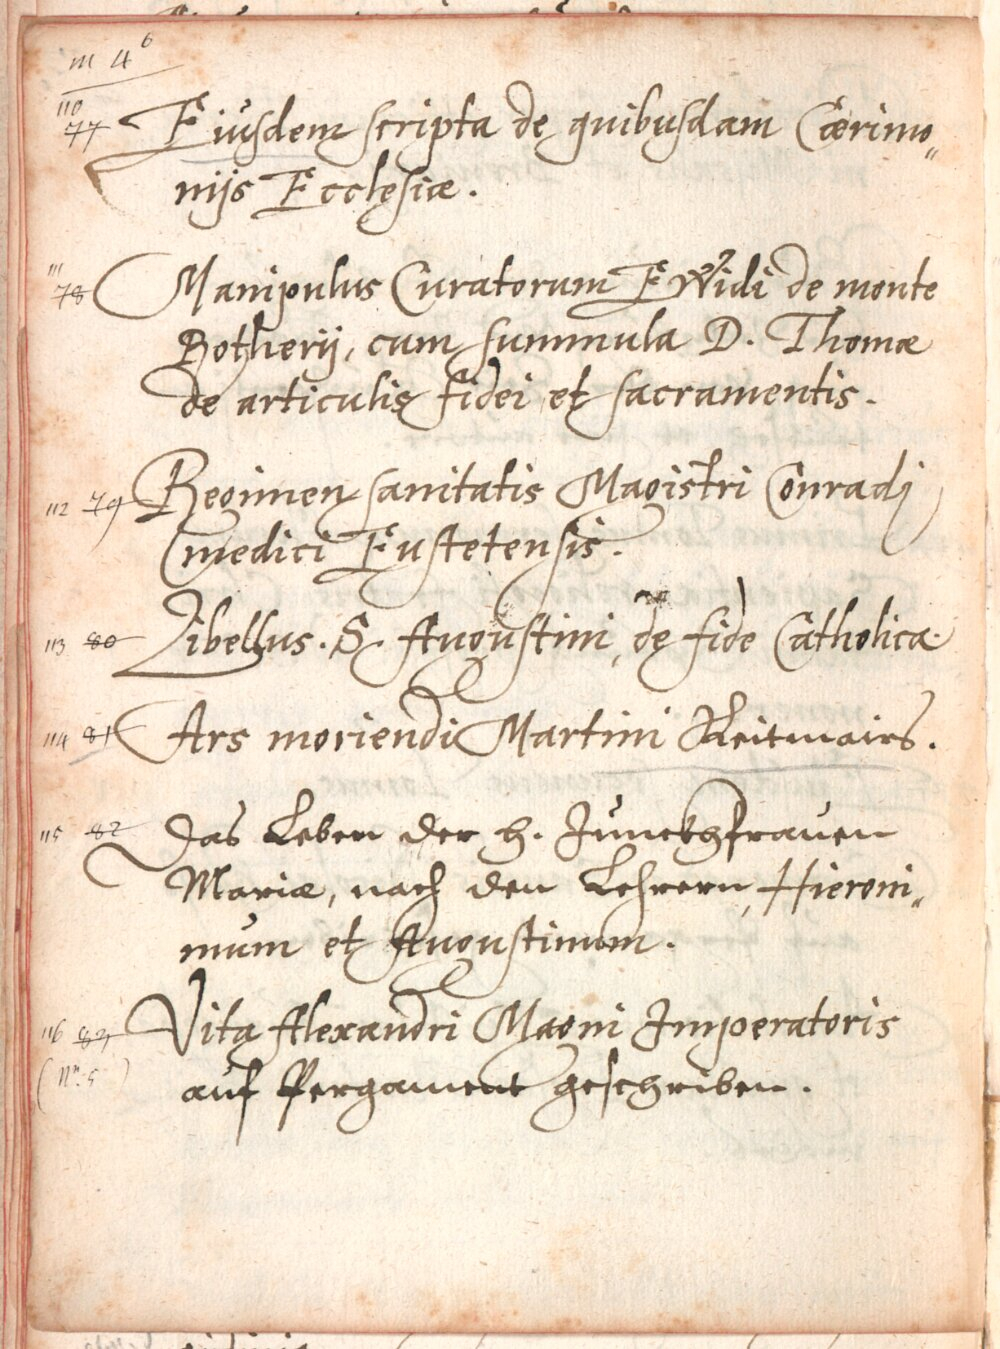 m 4 6
110
77 Eiusdem scripta de quibusdam Cærimo„
nijs Ecclesiæ.
111
78 Manipulus Curatorum E Widi de monte
Rotherij, cum summula D. Thomæ
de articulis fidei et sacramentis.
112 79 Regimen sanitatis Magistri Conradi
medici Eustetensis.
113 80 Libellus. S. Augustini, de fide Catholica.
114 81 Ars moriendi Martini Reitmairs.
115 82 Das Leben der h. Junckhfrauen
Mariæ, nach den Lehrern, Hieroni„
mum et Augustinum.
116 83 Vita Alexandri Magni Imperatoris
(Nr. 5) auf Pergament geschriben.